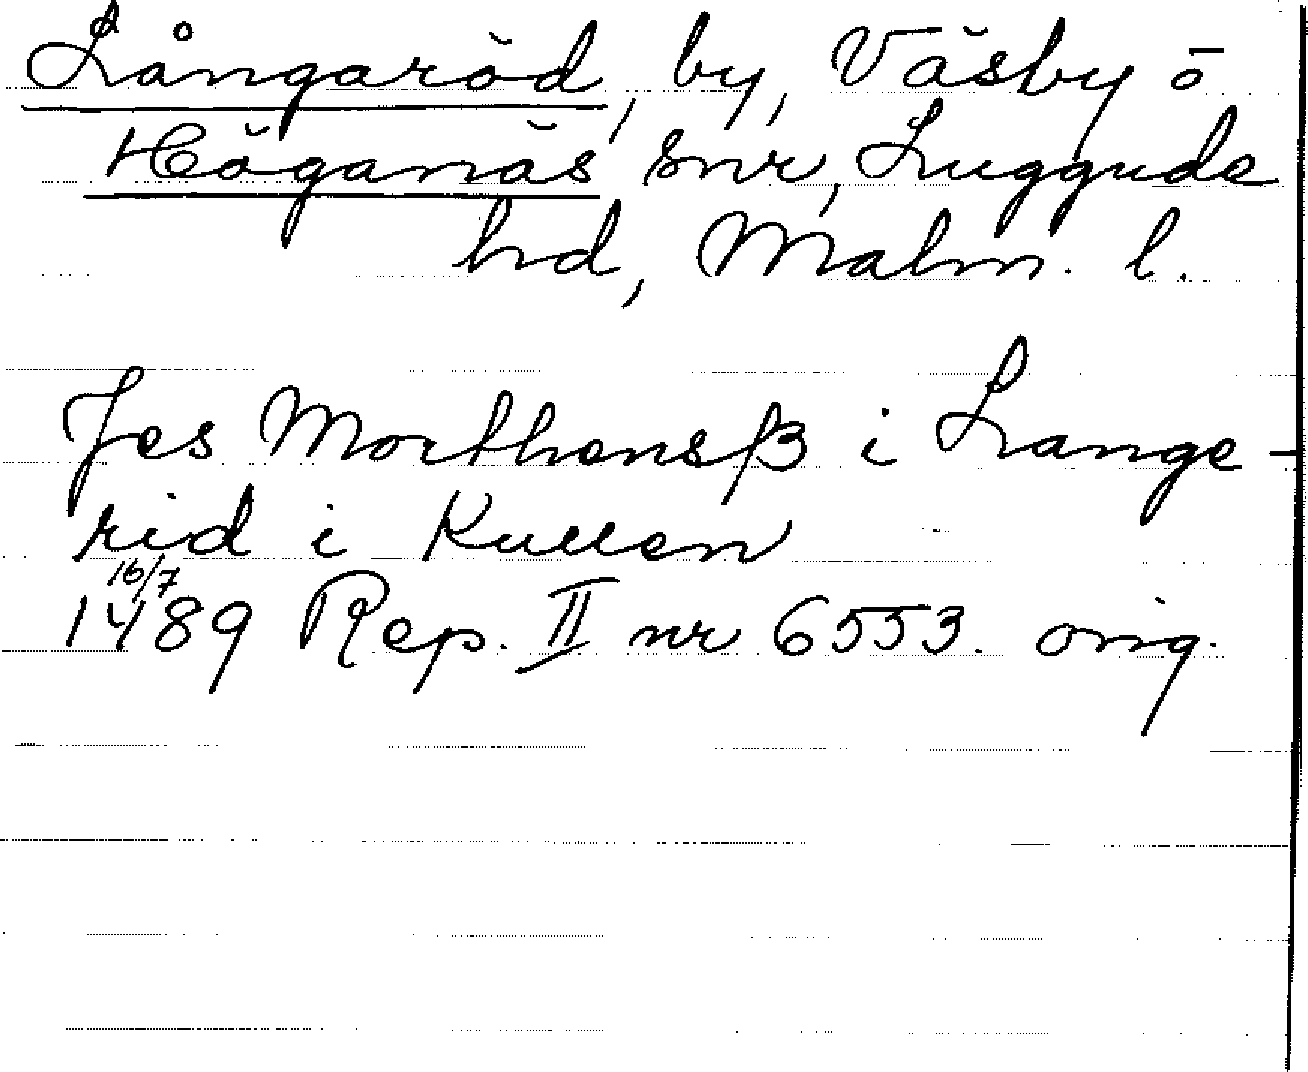 Långaröd, by, Väsby o
Höganäs snr, Luggude
hd, Malm. l.
Jes Morthensß i Lange-
rid i Kullen
16/7
1489 Rep. II nr 6553. orig.